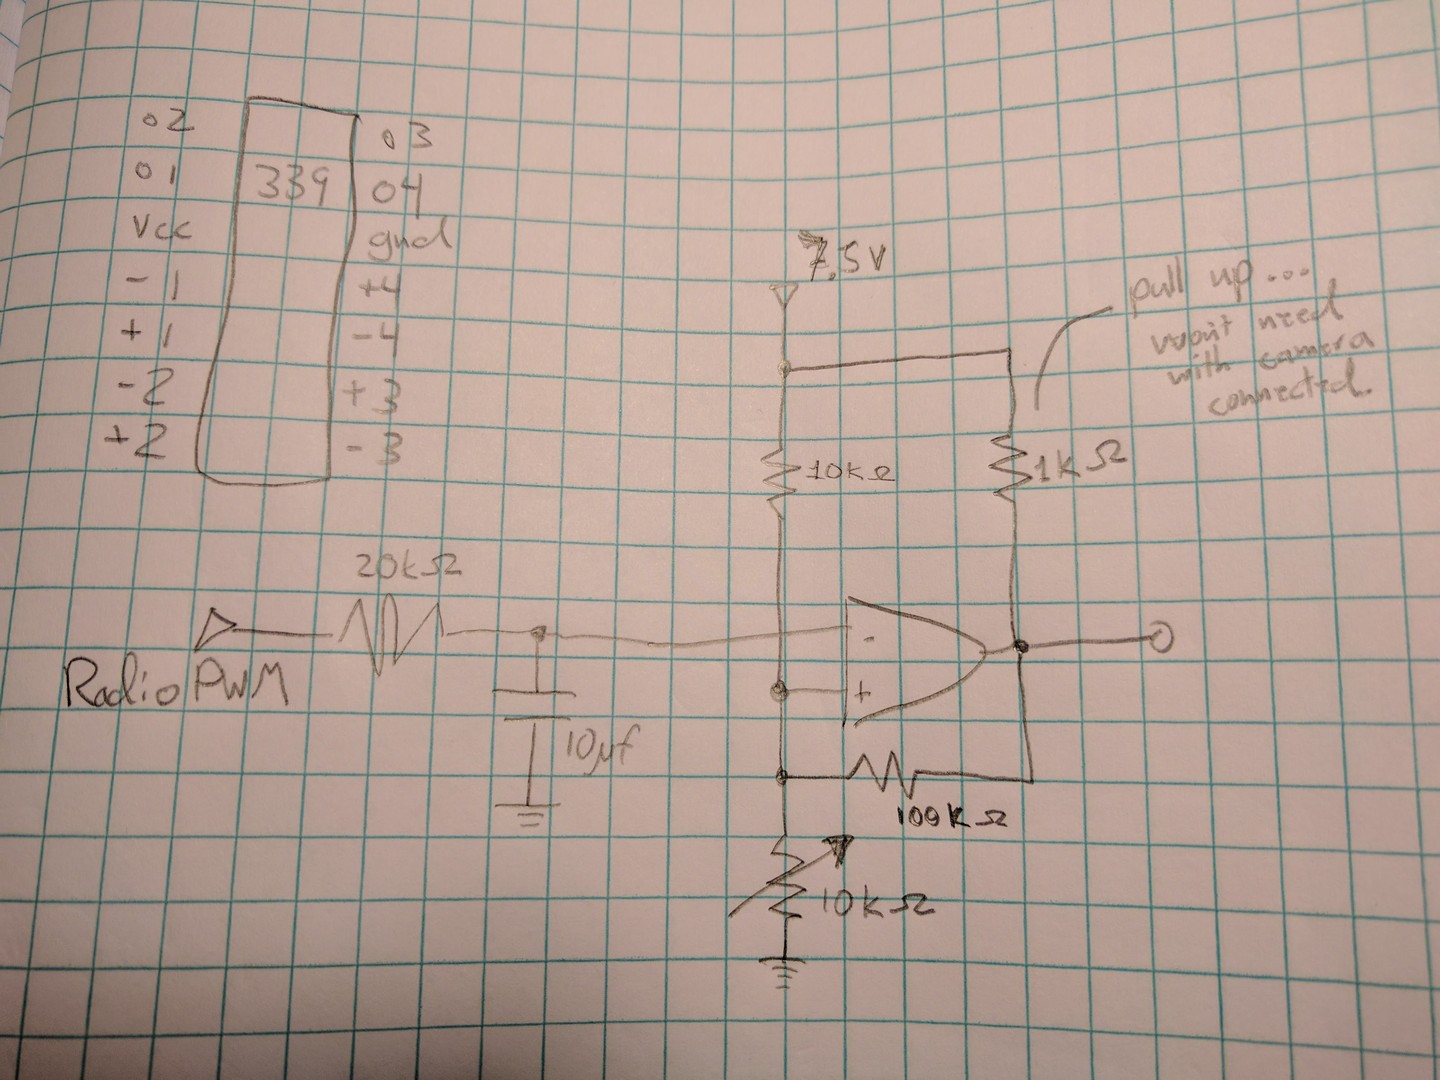 02
03
01
339
04
Vcc
gnd
- 1
+4
+ 1
-4
-2
+3
+2
- 3
7.5V
pull up ...
won't need
with camera
connected.
10kΩ
1kΩ
20kΩ
Radio PWM
-
+
10µf
100kΩ
10kΩ